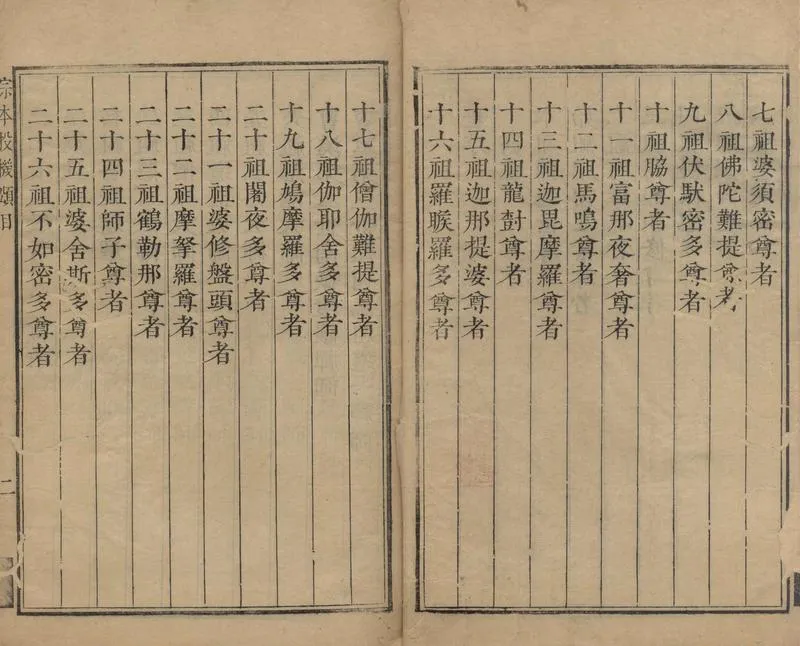 七祖婆須密尊者
八祖佛陀難提尊者
九祖伏馱密多尊者
十祖脇尊者
十一祖富那夜奢尊者
十二祖馬鳴尊者
十三祖迦毘摩羅尊者
十四祖龍尌尊者
十五祖迦那提婆尊者
十六祖羅睺羅多尊者
十七祖僧伽難提尊者
十八祖伽耶舍多尊者
十九祖鳩摩羅多尊者
二十祖闍夜多尊者
二十一祖婆修盤頭尊者
二十二祖摩拏羅尊者
二十三祖鶴勒那尊者
二十四祖師子尊者
二十五祖婆舍斯多尊者
二十六祖不如密多尊者
宗本投機頌目
二